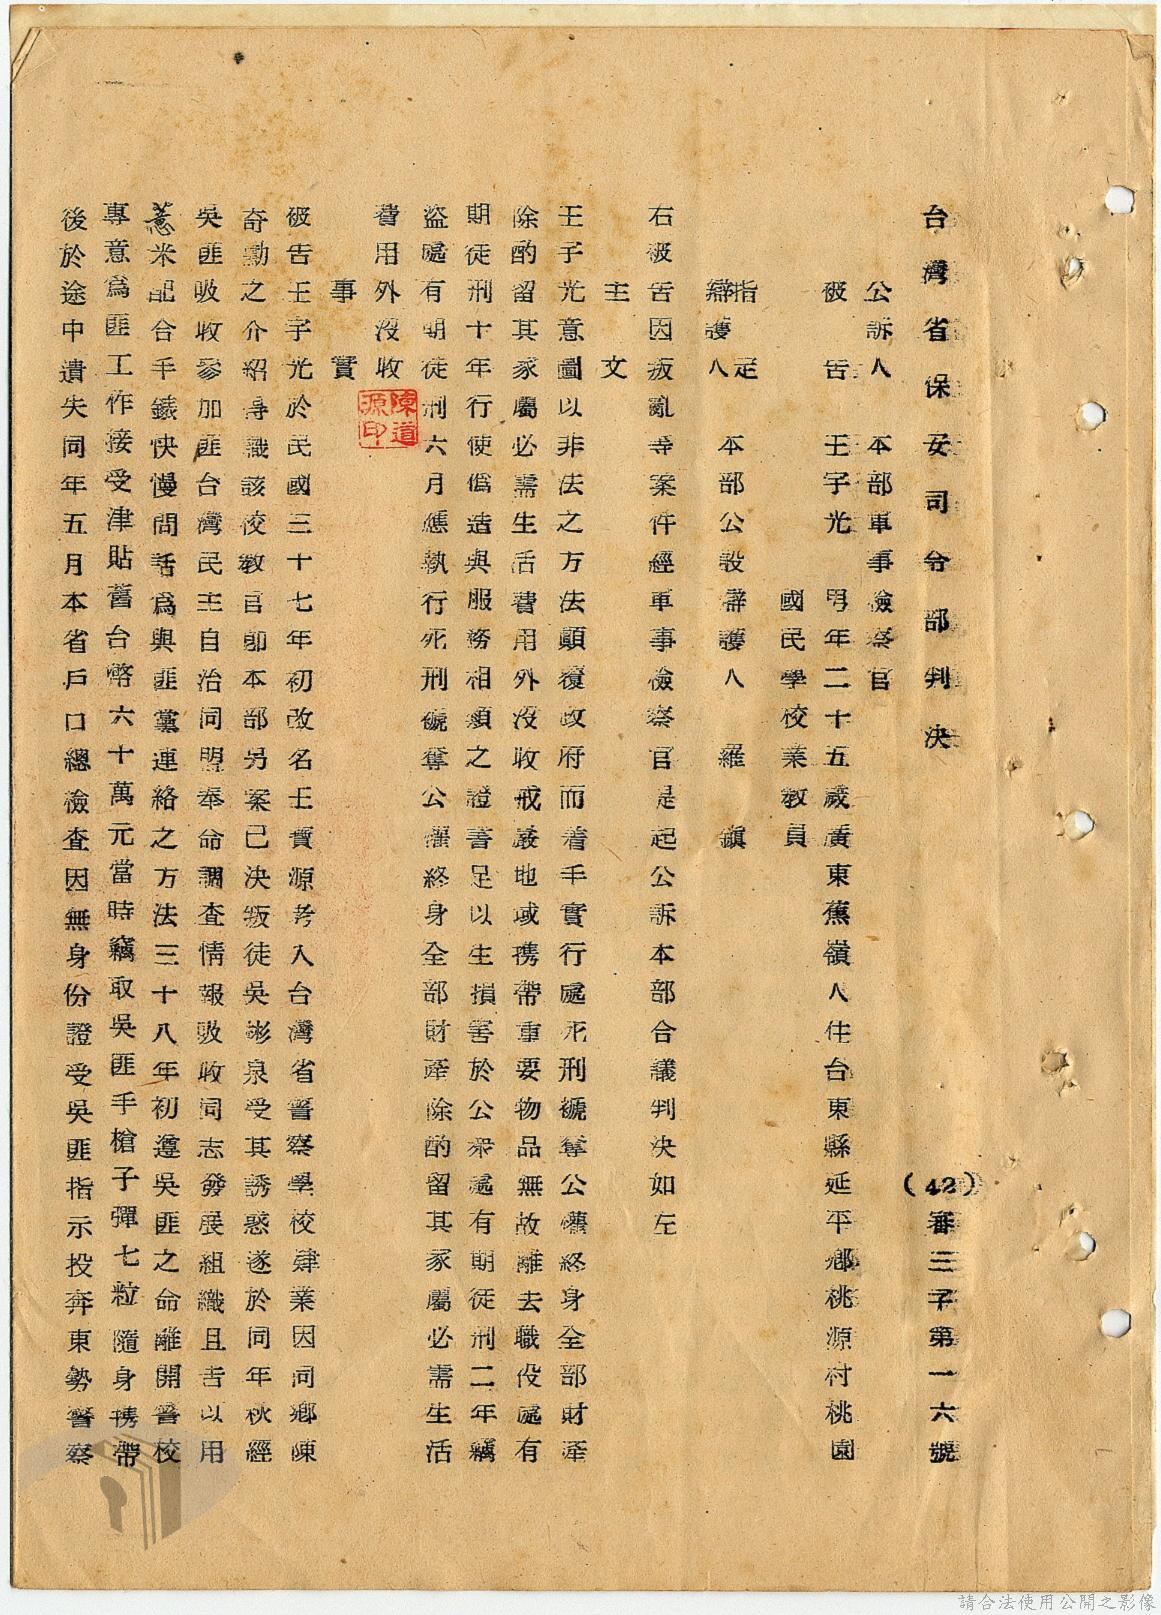 台灣省保安司令部判決
(42)審三字第一六號
公訴人　本部軍事檢察官
被告　王字光　男年二十五歲廣東蕉嶺人住台東縣延平鄉桃源村桃園
國民學校業教員
指定
辯護人　本部公設辯護人　羅鎮
右被告因叛亂等案件經軍事檢察官提起公訴本部合議判決如左
主文
王子光意圖以非法之方法顛覆政府而着手實行處死刑褫奪公權終身全部財產
除酌留其家屬必需生活費用外沒收戒嚴地域携帶重要物品無故離去職役處有
期徒刑十年行使偽造與服務相類之證書足以生損害於公眾處有期徒刑二年竊
盜處有期徒刑六月應執行死刑褫奪公權終身全部財產除酌留其家屬必需生活
費用外沒收
陳道源印
事實
被告王字光於民國三十七年初改名王寶源考入台灣省警察學校肄業因同鄉陳
奇勳之介紹得識該校教官即本部另案已決叛徒吳彬泉受其誘惑遂於同年秋經
吳匪吸收參加匪台灣民主自治同盟奉命調查情報吸收同志發展組織且告以用
薏米配合手錶快慢問話為與匪黨連絡之方法三十八年初遵吳匪之命離開警校
專意為匪工作接受津貼舊台幣六十萬元當時竊取吳匪手槍子彈七粒隨身携帶
後於途中遺失同年五月本省戶口總檢查因無身份證受吳匪指示投奔東勢警察
請合法使用公開之影像